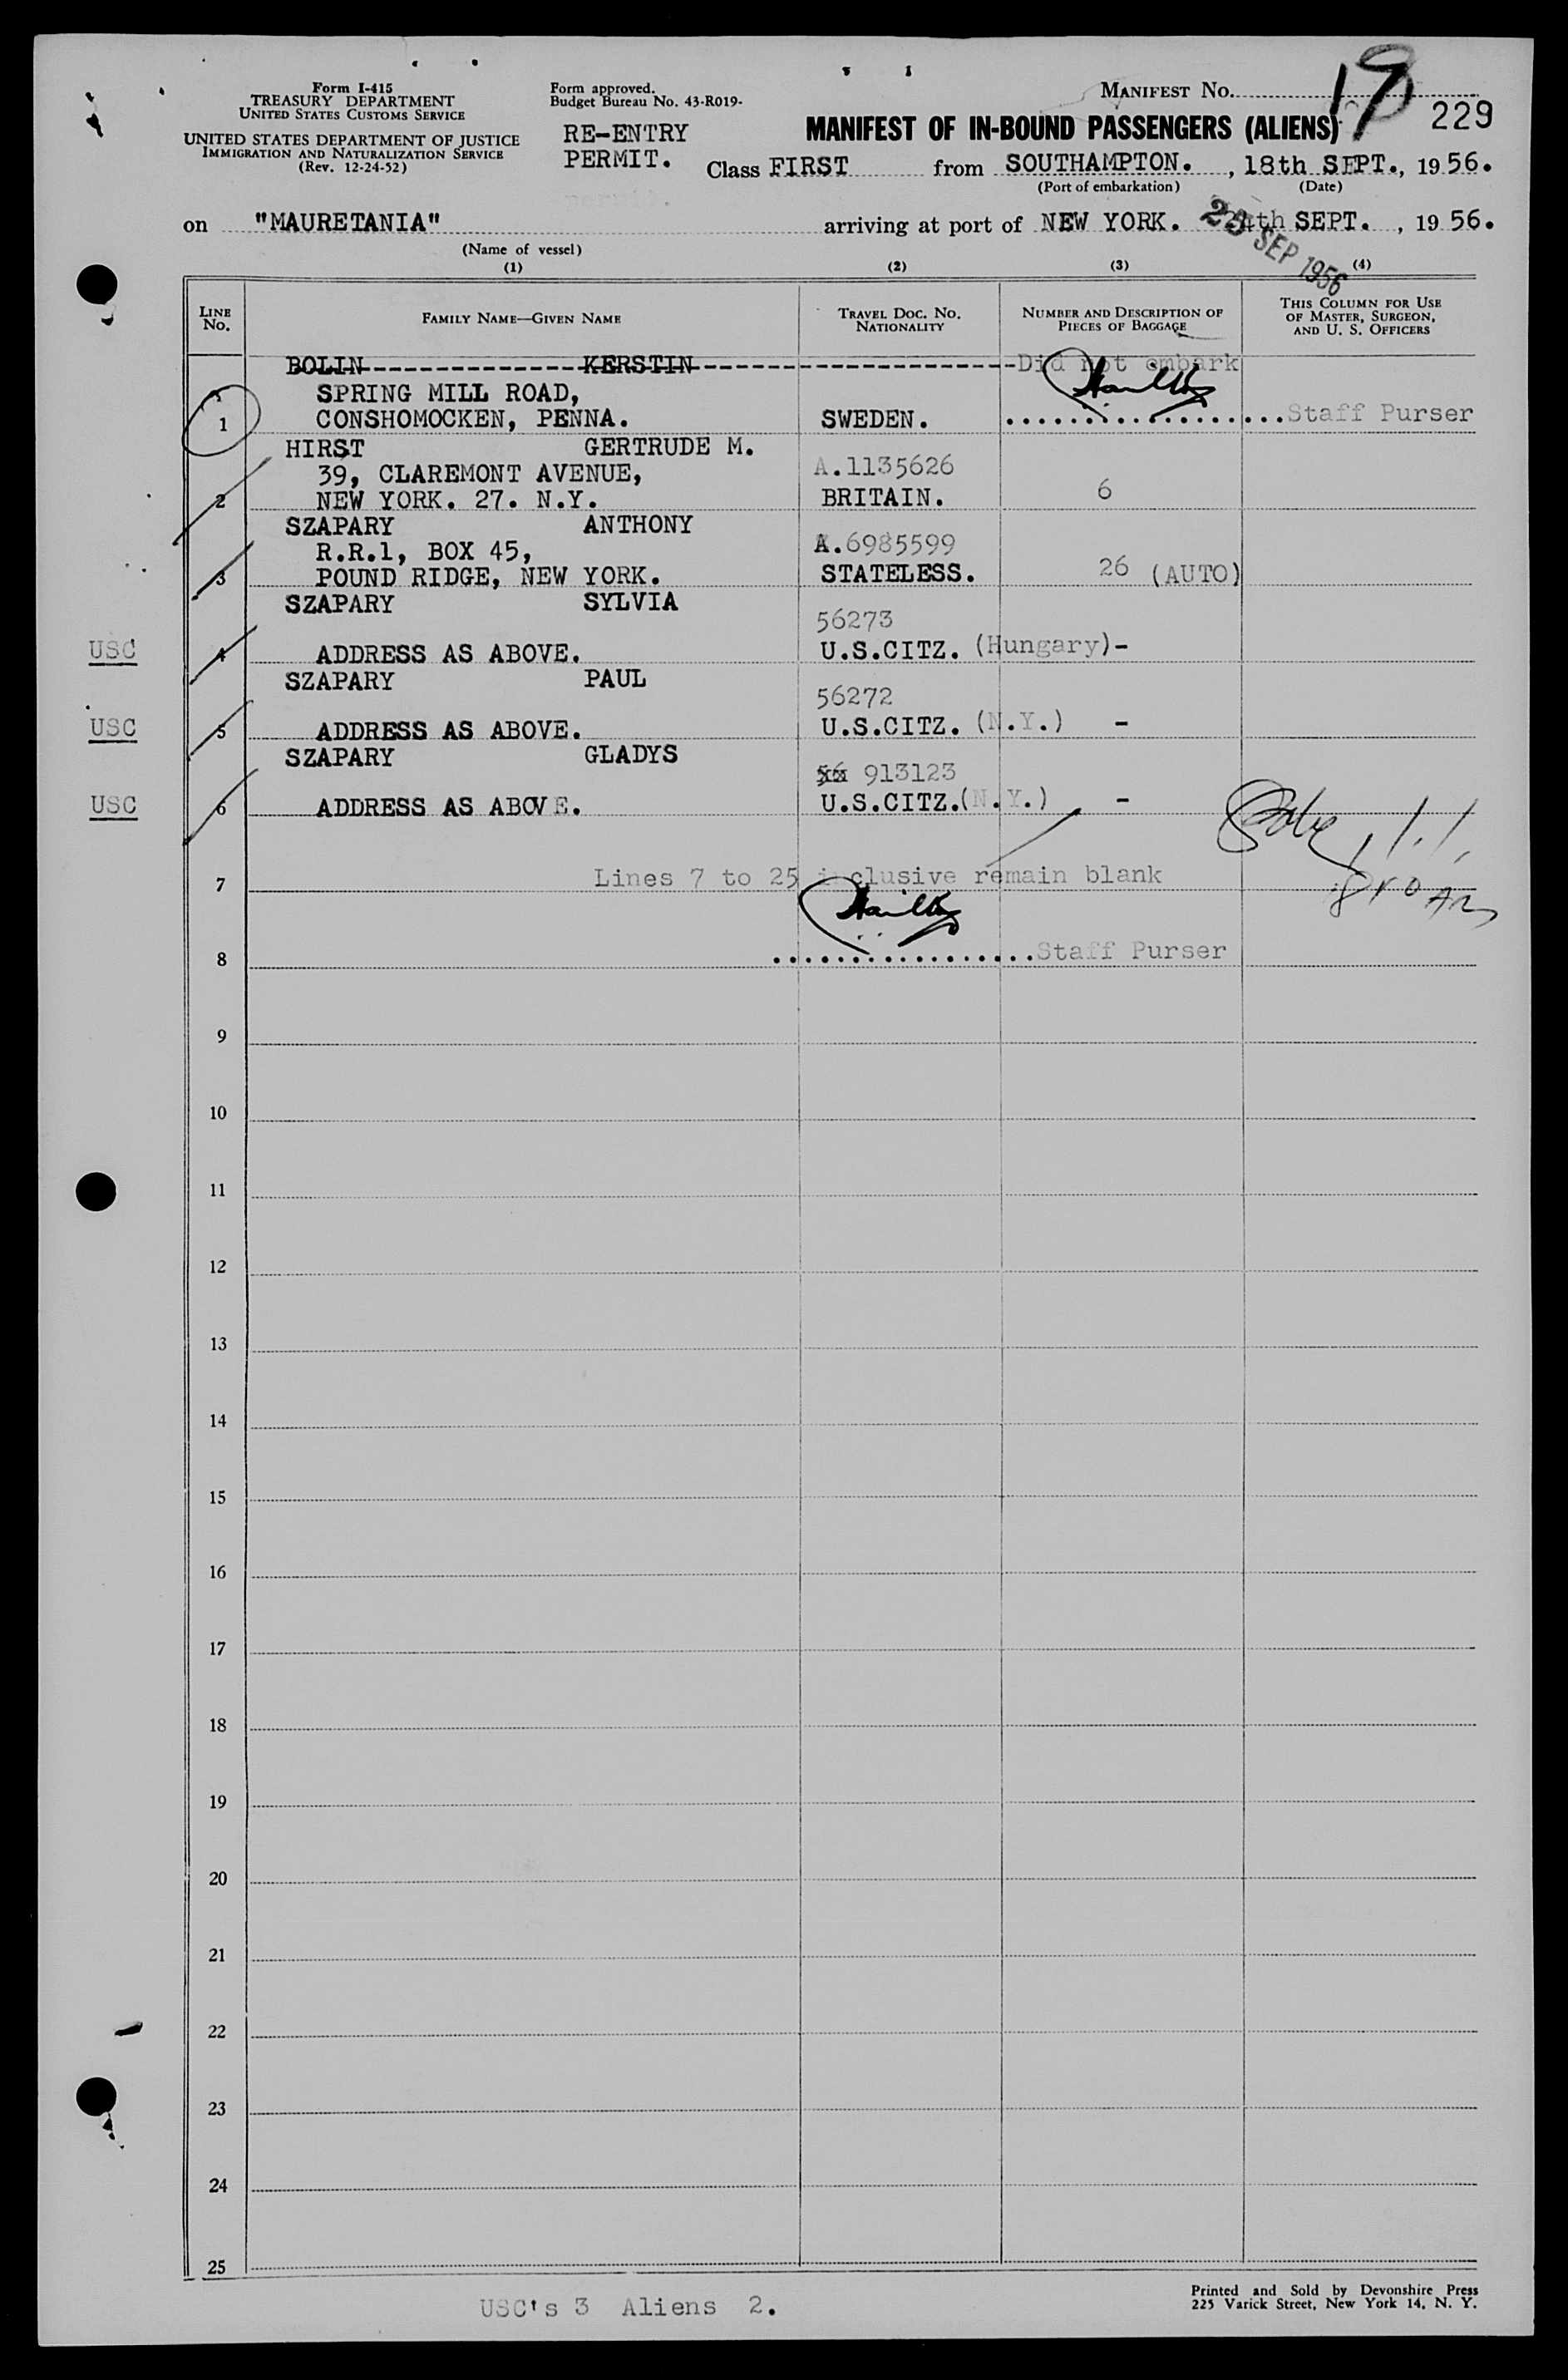 Form I-415
TREASURY DEPARTMENT
UNITED STATES CUSTOMS SERVICE
UNITED STATES DEPARTMENT OF JUSTICE
IMMIGRATION AND NATURALIZATION SERVICE
(Rev. 12-24-52)
Form approved.
Budget Bureau No. 43-R019-
RE-ENTRY
PERMIT.
MANIFEST No. 19
229
MANIFEST OF IN-BOUND PASSENGERS (ALIENS)
Class FIRST from SOUTHAMPTON. , 18th SEPT., 19 56.
(Port of embarkation) (Date)
on "MAURETANIA" arriving at port of NEW YORK. 24th SEPT. , 19 56.
(Name of vessel)
SEP 1956
(1) (2) (3) (4)
LINE No. FAMILY NAME—GIVEN NAME TRAVEL DOC. No. NATIONALITY NUMBER AND DESCRIPTION OF PIECES OF BAGGAGE THIS COLUMN FOR USE OF MASTER, SURGEON, AND U. S. OFFICERS
BOLIN KERSTIN Did not embark
SPRING MILL ROAD,
1 CONSHOMOCKEN, PENNA. SWEDEN. Staff Purser
HIRST GERTRUDE M.
39, CLAREMONT AVENUE, A.1135626
2 NEW YORK. 27. N.Y. BRITAIN. 6
SZAPARY ANTHONY
R.R.1, BOX 45, A.6985599
3 POUND RIDGE, NEW YORK. STATELESS. 26 (AUTO)
SZAPARY SYLVIA
56273
USC 4 ADDRESS AS ABOVE. U.S.CITZ. (Hungary)-
SZAPARY PAUL
56272
USC 5 ADDRESS AS ABOVE. U.S.CITZ. (N.Y.) -
SZAPARY GLADYS
56 913123
USC 6 ADDRESS AS ABOVE. U.S.CITZ.(N.Y.) -
7 Lines 7 to 25 inclusive remain blank
8 Staff Purser
9
10
11
12
13
14
15
16
17
18
19
20
21
22
23
24
25
USC's 3 Aliens 2.
Printed and Sold by Devonshire Press
225 Varick Street, New York 14, N. Y.